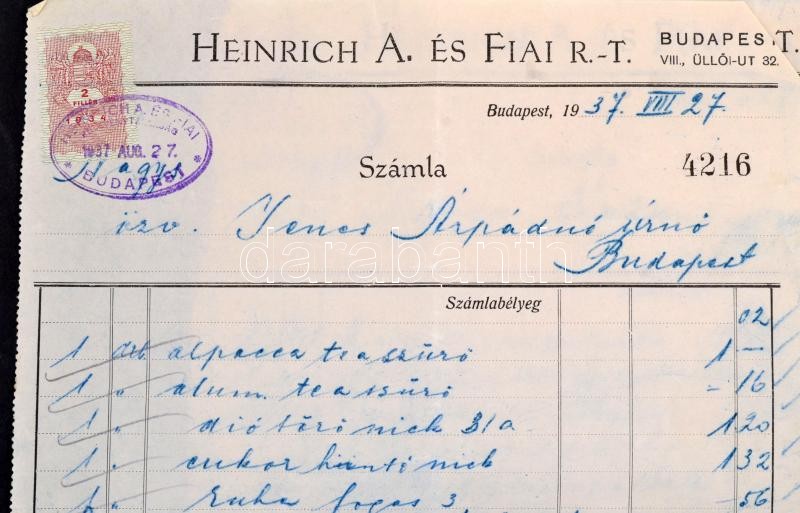 HEINRICH A. ÉS FIAI R.-T.
BUDAPEST.
VIII., ÜLLŐI-UT 32.
2
FILLÉR
1934
HEINRICH A. ÉS FIAI
1937 AUG. 27.
* BUDAPEST *
Budapest, 1937. VIII 27.
Számla 4216
Nagys.
özv. Jenes Árpádnő úrnő
Budapest
darabanth
Számlabélyeg 02
1 drb. alpacca teaszűrő 1 —
1 " alum. teaszűrő - 16
1 " diótörő nick 31a 1 20
1 " cukor nick 1 32
1 " ruha fogas 3 - 56